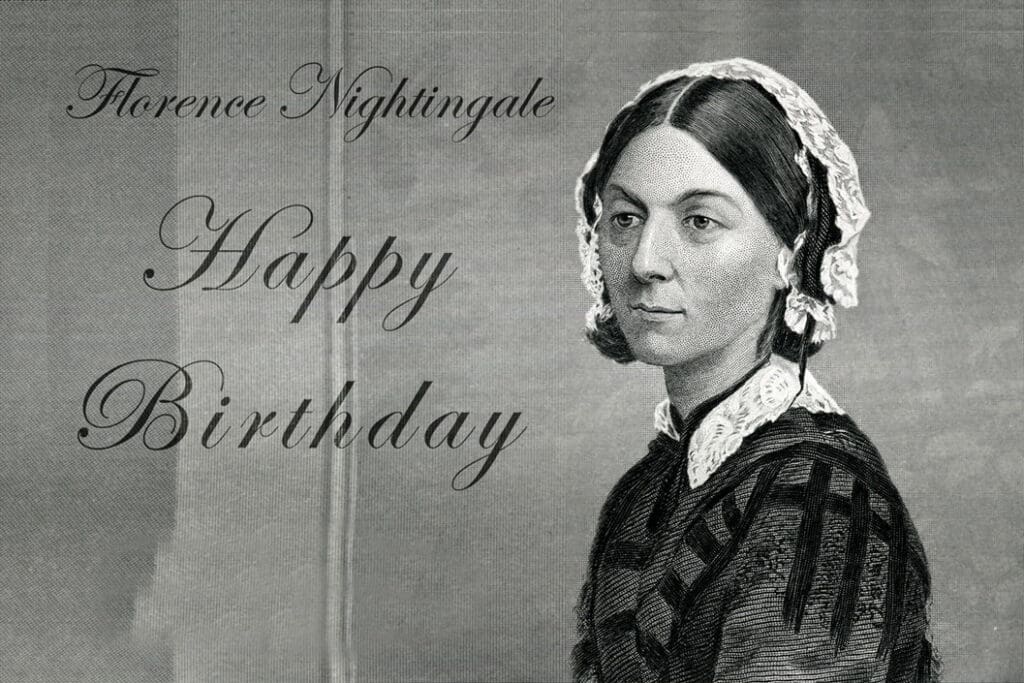 Florence Nightingale
Happy
Birthday